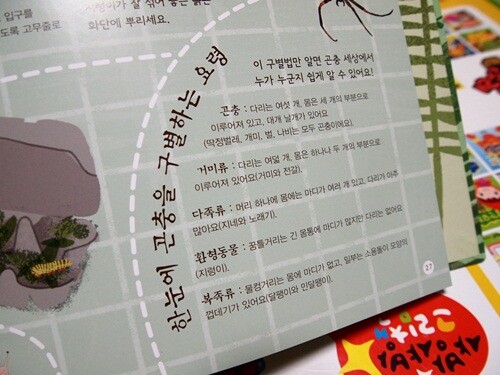 입구를
도록 고무줄로
화단에 뿌리세요.
한눈에 곤충을 구별하는 요령
이 구별법만 알면 곤충 세상에서
누가 누군지 쉽게 알 수 있어요!
곤충 : 다리는 여섯 개, 몸은 세 개의 부분으로
이루어져 있고, 대개 날개가 있어요
(딱정벌레, 개미, 벌, 나비는 모두 곤충이에요).
거미류 : 다리는 여덟 개, 몸은 하나나 두 개의 부분으로
이루어져 있어요(거미와 전갈).
다족류 : 머리 하나에 몸에는 마디가 여러 개 있고, 다리가 아주
많아요(지네와 노래기).
환형동물 : 꿈틀거리는 긴 몸통에 마디가 많지만 다리는 없어요
(지렁이).
복족류 : 물컹거리는 몸에 마디가 없고, 일부는 소용돌이 모양의
껍데기가 있어요(달팽이와 민달팽이).
17